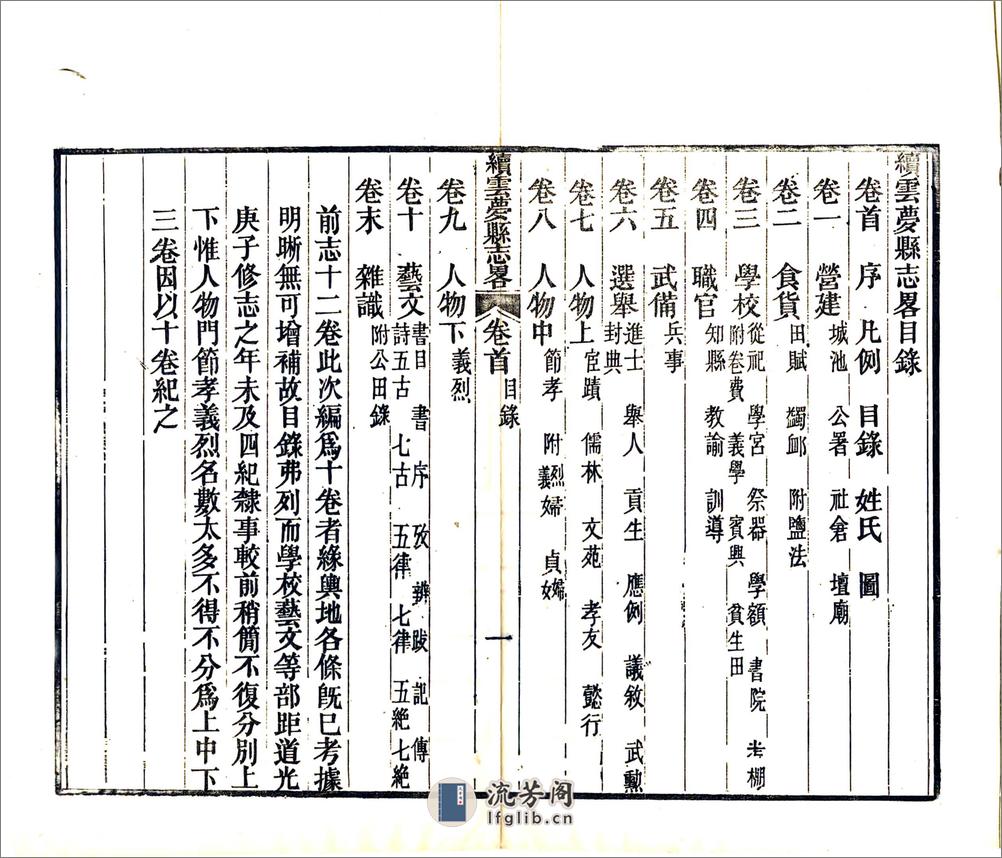 續雲夢縣志畧目錄
卷首 序 凡例 目錄 姓氏 圖
卷一 營建 城池 公署 社倉 壇廟
卷二 食貨 田賦 蠲卹 附鹽法
卷三 學校 從祀 學宮 祭器 學額 書院 考棚
附卷費 義學 賓興 貧生田
卷四 職官 知縣 教諭 訓導
卷五 武備 兵事
卷六 選舉 進士 舉人 貢生 應例 議敘 武勲
封典
卷七 人物上 宦蹟 儒林 文苑 孝友 懿行
卷八 人物中 節孝 附烈婦 貞婦
義
續雲夢縣志畧 卷首 目錄 一
卷九 人物下 義烈
卷十 藝文 書目 書 序 攷 辨 跋 記 傳
詩五古 七古 五律 七律 五絶 七絶
卷末 雜識 附公田錄
前志十二卷此次編爲十卷者緣輿地各條旣已考據
明晰無可增補故目錄弗列而學校藝文等部距道光
庚子修志之年未及四紀隸事較前稍簡不復分別上
下惟人物門節孝義烈名數太多不得不分爲上中下
三卷因以十卷紀之
流芳阁
lfglib.cn